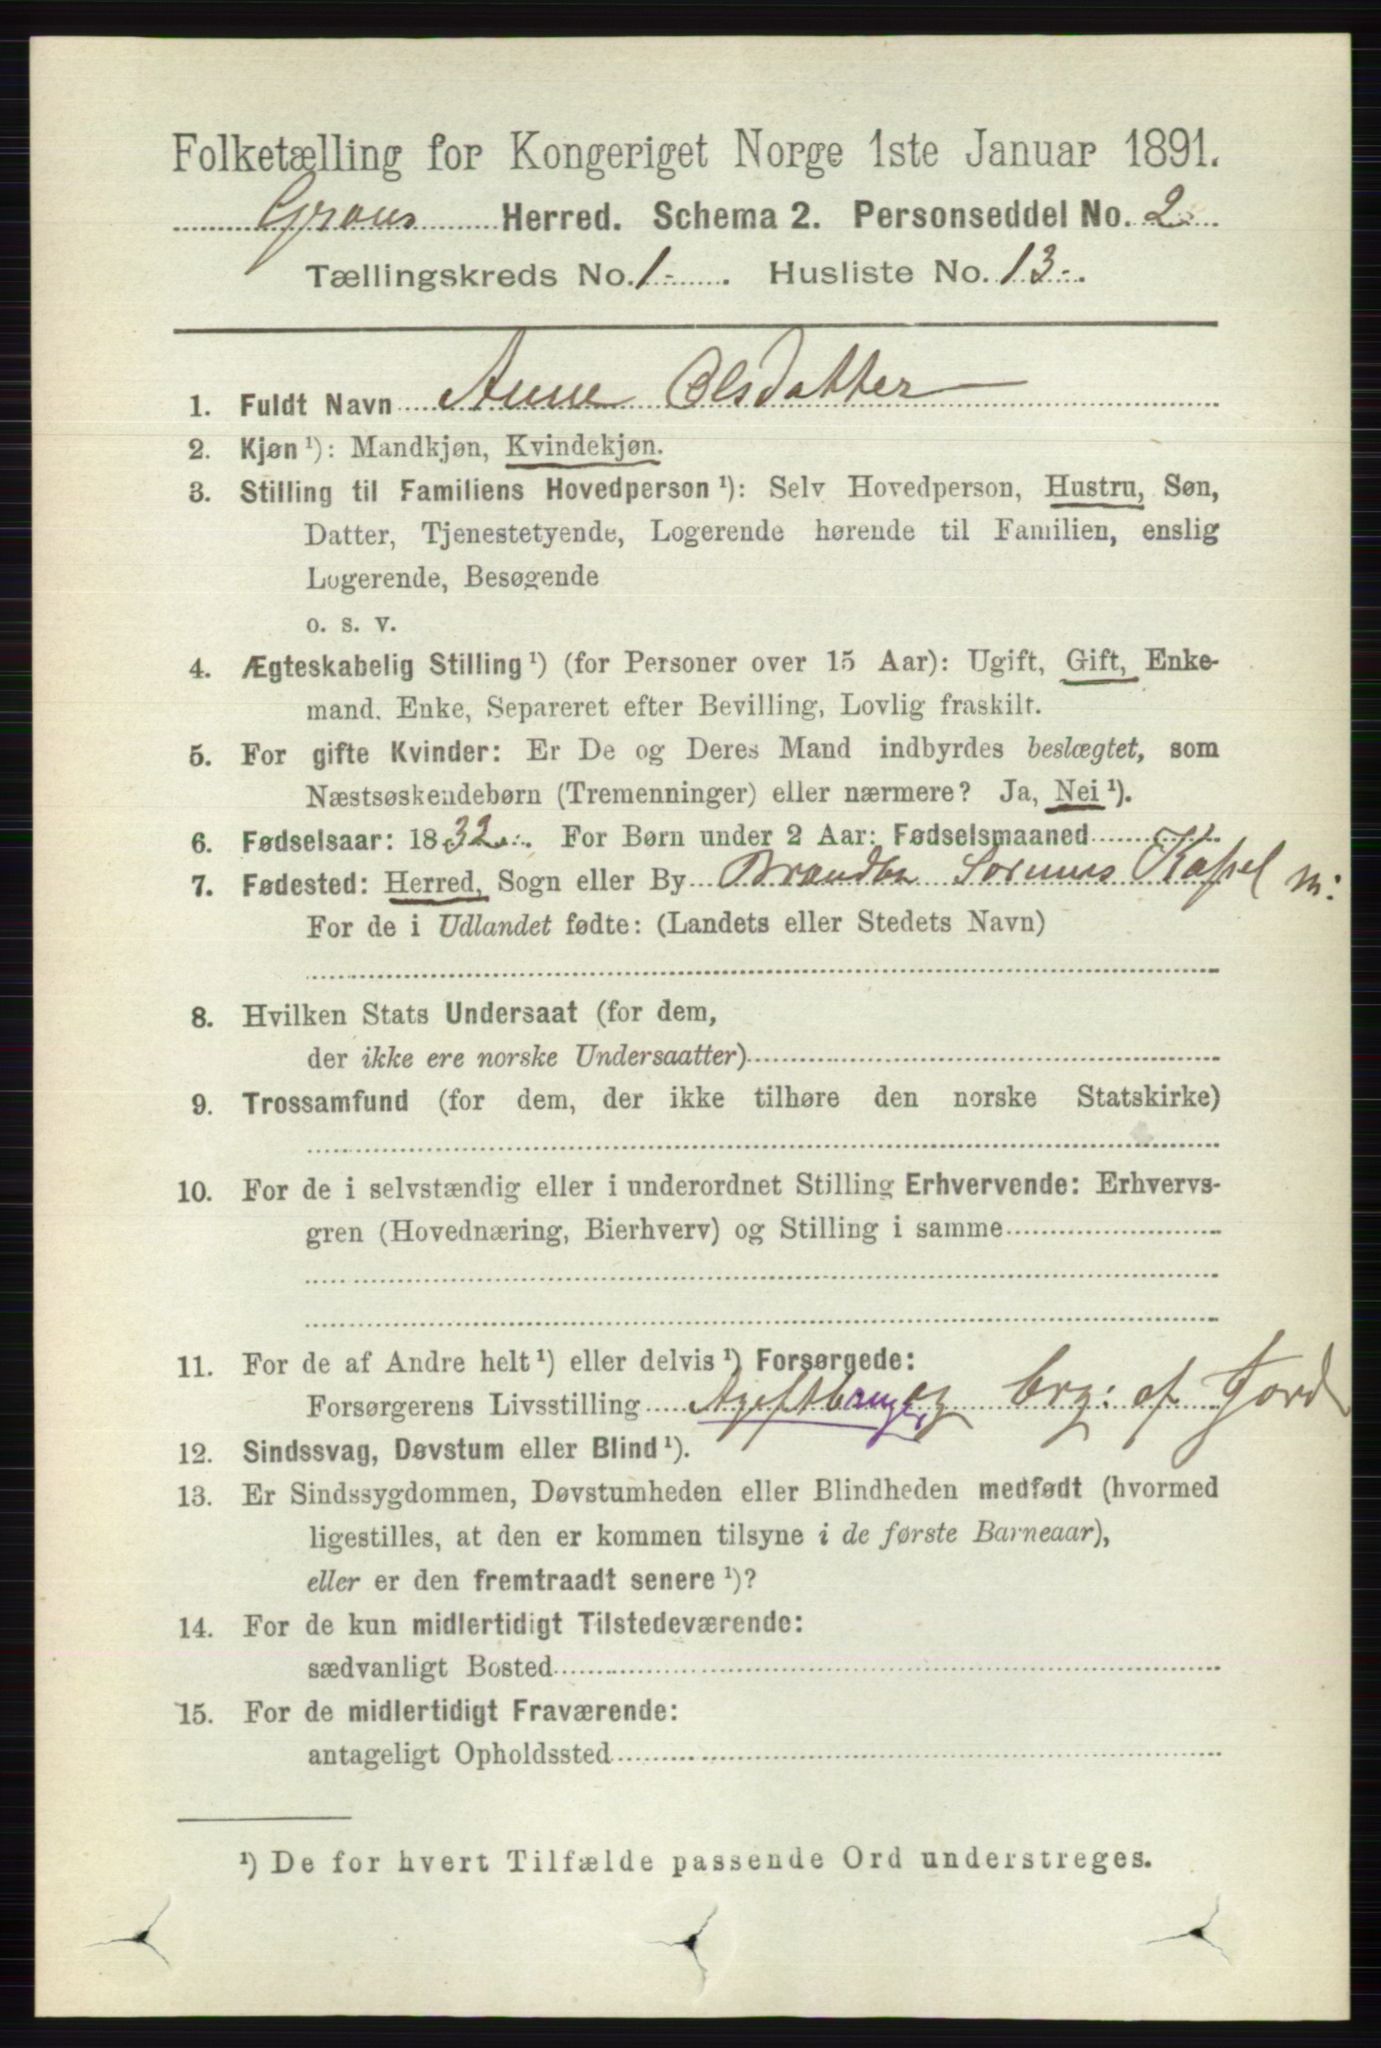 Folketælling for Kongeriget Norge 1ste Januar 1891.
Grans Herred. Schema 2. Personseddel No. 2
Tællingskreds No. 1 . Husliste No. 13 .
1. Fuldt Navn Anne Olsdatter
2. Kjøn ¹): Mandkjøn, Kvindekjøn.
3. Stilling til Familiens Hovedperson ¹): Selv Hovedperson, Hustru, Søn,
Datter, Tjenestetyende, Logerende hørende til Familien, enslig
Logerende, Besøgende
o. s. v.
4. Ægteskabelig Stilling ¹) (for Personer over 15 Aar): Ugift, Gift, Enke-
mand. Enke, Separeret efter Bevilling, Lovlig fraskilt.
5. For gifte Kvinder: Er De og Deres Mand indbyrdes beslægtet, som
Næstsøskendebørn (Tremenninger) eller nærmere? Ja, Nei ¹).
6. Fødselsaar: 1832 . For Børn under 2 Aar: Fødselsmaaned
7. Fødested: Herred, Sogn eller By Brandbu
For de i Udlandet fødte: (Landets eller Stedets Navn)
8. Hvilken Stats Undersaat (for dem,
der ikke ere norske Undersaatter)
9. Trossamfund (for dem, der ikke tilhøre den norske Statskirke)
10. For de i selvstændig eller i underordnet Stilling Erhvervende: Erhvervs-
gren (Hovednæring, Bierhverv) og Stilling i samme
11. For de af Andre helt ¹) eller delvis ¹) Forsørgede:
Forsørgerens Livsstilling og brg: af Jord
12. Sindssvag, Døvstum eller Blind ¹).
13. Er Sindssygdommen, Døvstumheden eller Blindheden medfødt (hvormed
ligestilles, at den er kommen tilsyne i de første Barneaar),
eller er den fremtraadt senere ¹)?
14. For de kun midlertidigt Tilstedeværende:
sædvanligt Bosted
15. For de midlertidigt Fraværende:
antageligt Opholdssted
¹) De for hvert Tilfælde passende Ord understreges.